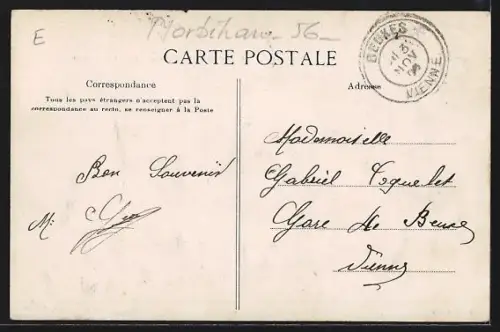 E
Morbihan - 56 -
CARTE POSTALE
BEUXES
3
NOV
VIENNE
Correspondance
Tous les pays étrangers n'acceptent pas la
correspondance au recto, se renseigner à la Poste
Adresse
Bon Souvenir
M:
Mademoiselle
Gabriel
Gare de Beuxes
Vienne